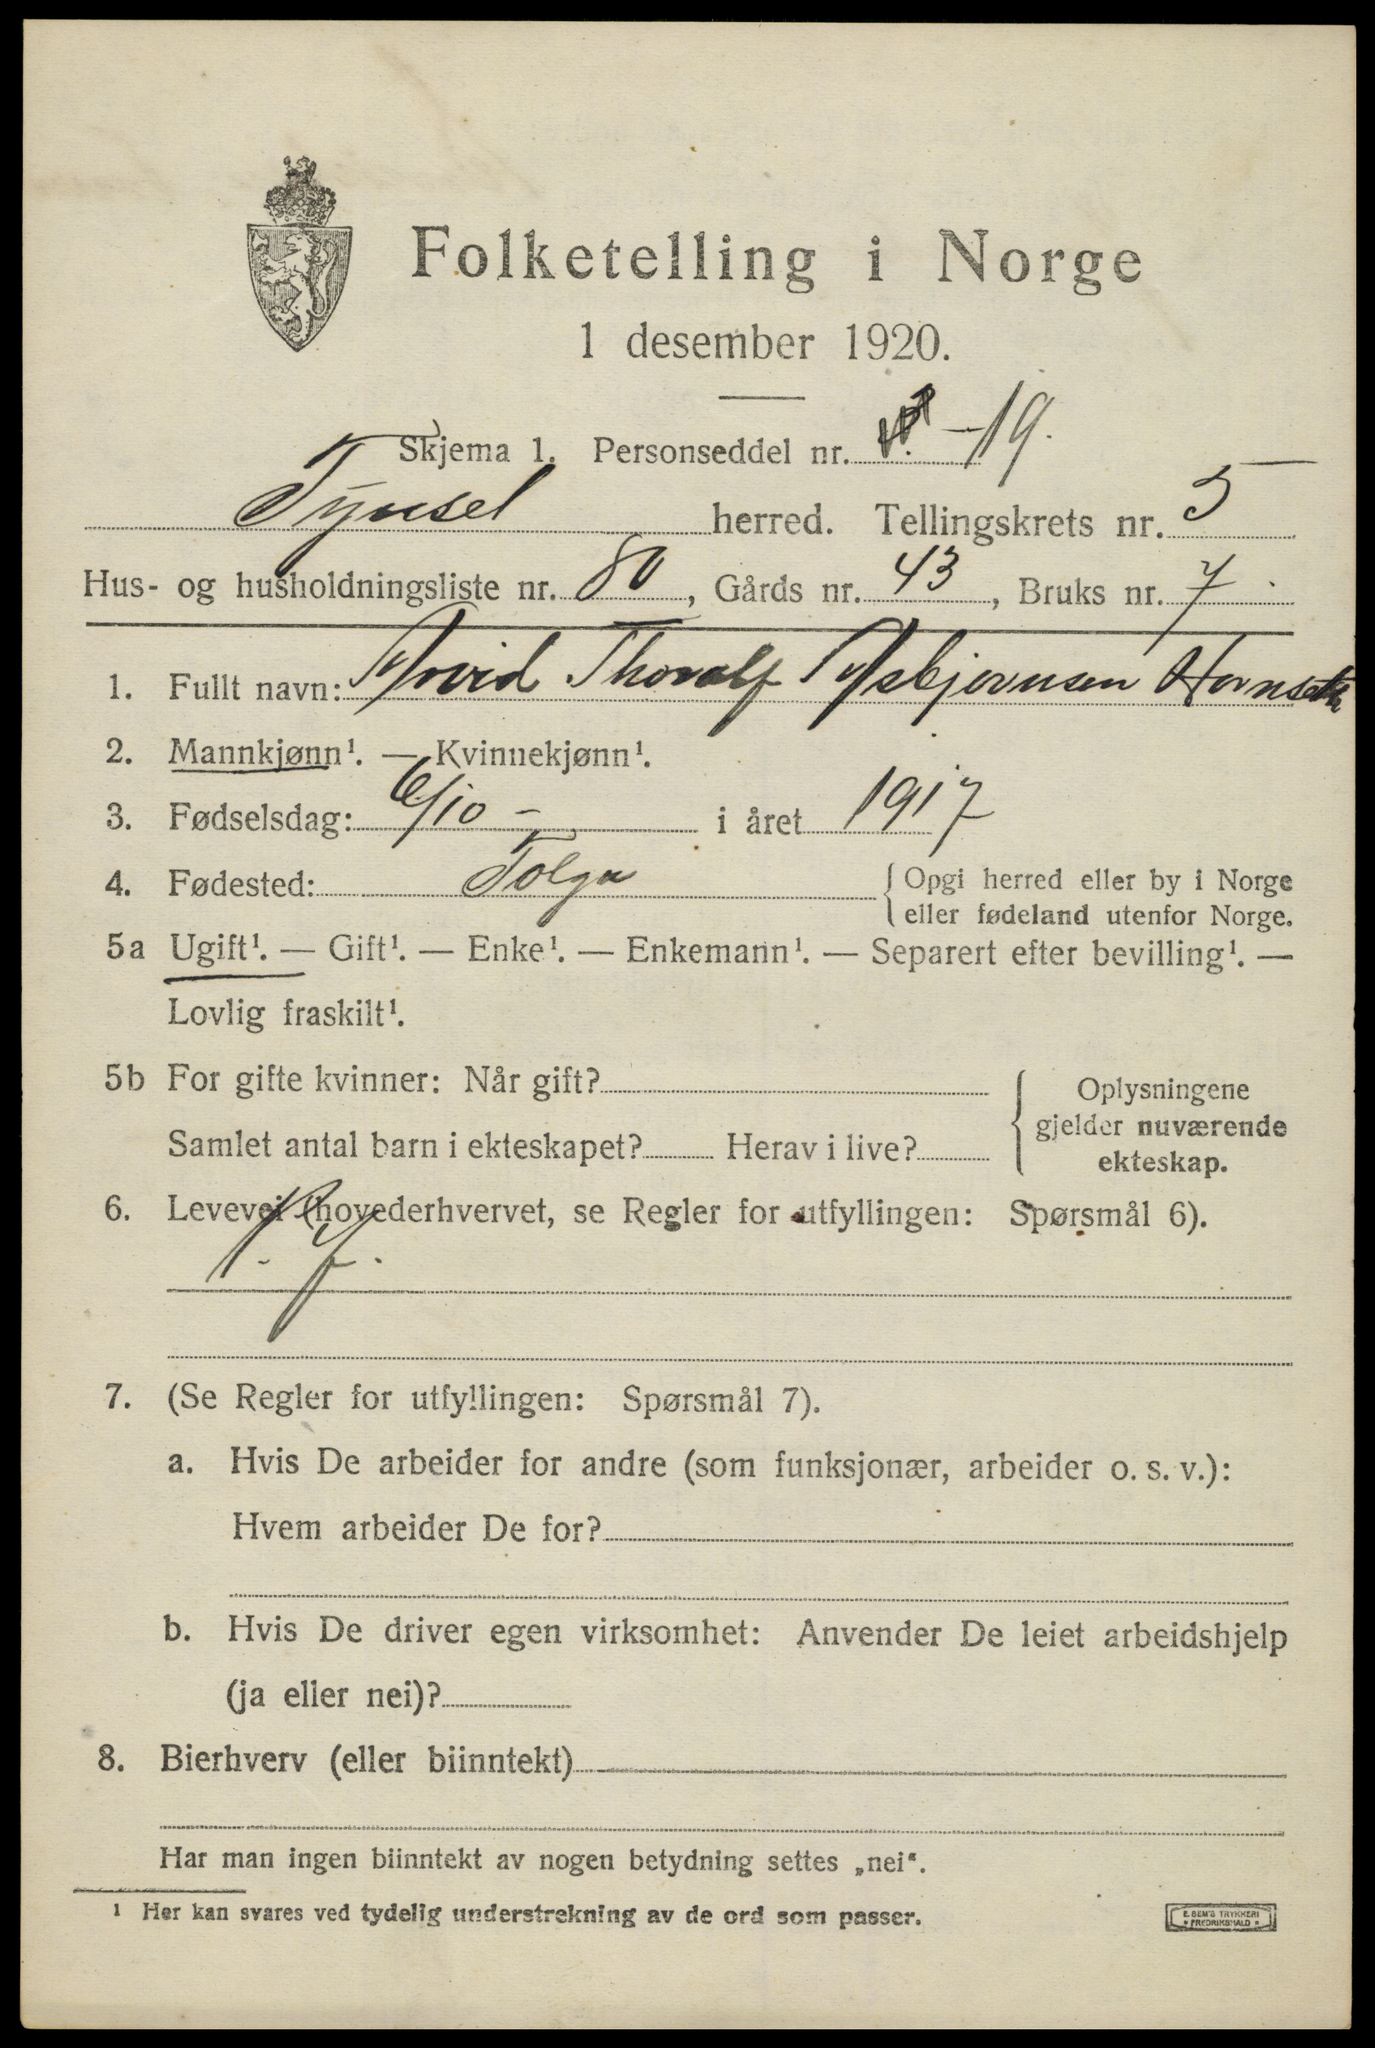 Folketelling i Norge
1 desember 1920.
Skjema 1. Personseddel nr. -19.
Tynset herred. Tellingskrets nr. 5
Hus- og husholdningsliste nr. 80, Gårds nr. 43, Bruks nr. 7
1. Fullt navn: Arvid Thoralf Asbjørnsen Hornseth
2. Mannkjønn¹. — Kvinnekjønn¹.
3. Fødselsdag: 6/10 - i året 1917
4. Fødested: Tolga { Opgi herred eller by i Norge
eller fødeland utenfor Norge.
5a Ugift¹. — Gift¹. — Enke¹. — Enkemann¹. — Separert efter bevilling¹. —
Lovlig fraskilt¹.
5b For gifte kvinner: Når gift? { Oplysningene
gjelder nuværende
Samlet antal barn i ekteskapet? Herav i live?
ekteskap.
6. Levevei (hovederhvervet, se Regler for utfyllingen: Spørsmål 6).
7. (Se Regler for utfyllingen: Spørsmål 7).
a. Hvis De arbeider for andre (som funksjonær, arbeider o. s. v.):
Hvem arbeider De for?
b. Hvis De driver egen virksomhet: Anvender De leiet arbeidshjelp
(ja eller nei)?
8. Bierhverv (eller biinntekt)
Har man ingen biinntekt av nogen betydning settes „nei“.
¹ Her kan svares ved tydelig understrekning av de ord som passer.
E. SEM'S TRYKKERI
FREDRIKSHALD